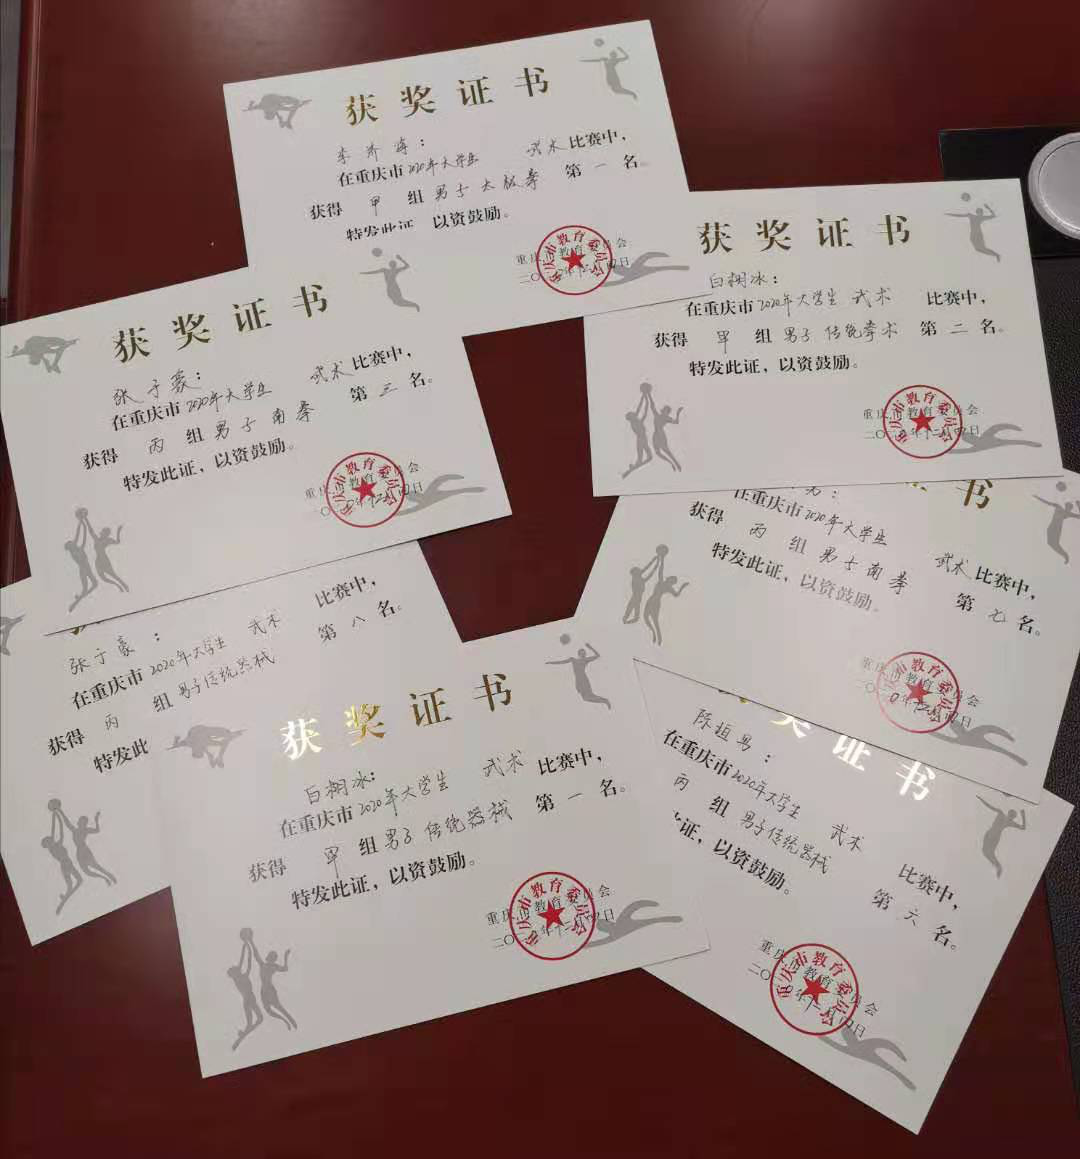 获奖证书
李
在重庆市2020年大学生 武术比赛中，
获得 甲 组 男子太极拳 第一名。
特发此证，以资鼓励。
重庆市教育委员会
获奖证书
白栩冰：
在重庆市2020年大学生 武术 比赛中，
获得 甲 组 男子 传统拳术 第二名。
特发此证，以资鼓励。
重庆市教育委员会
二〇二〇年十二月四日
获奖证书
张子豪：
在重庆市2020年大学生 武术比赛中，
获得 丙 组 男子南拳 第三名。
特发此证，以资鼓励。
重庆市教育委员会
书
男：
在重庆市2020年大学生 武术比赛中，
获得 丙 组 男子南拳 第七名。
特发此证，以资鼓励。
张子豪：
在重庆市2020年大学生 武术 比赛中，
获得 丙 组 男子传统器械 第八名。
特发此
获奖证书
白栩冰：
在重庆市2020年大学生 武术 比赛中，
获得 甲 组 男子 传统器械 第一名。
特发此证，以资鼓励。
重庆市教育委员会
二〇二〇年十二月四日
奖证书
陈垣男：
在重庆市2020年大学生 武术 比赛中，
丙 组 男子传统器械 第六名。
此证，以资鼓励。
重庆市教育委员会
二〇二〇年十二月四日